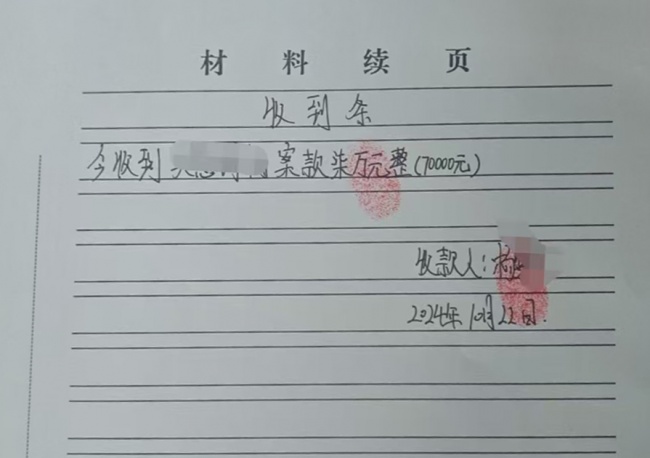 材料续页
收到条
今收到 案款柒万元整(70000元)
收款人:
2024年10月22日.